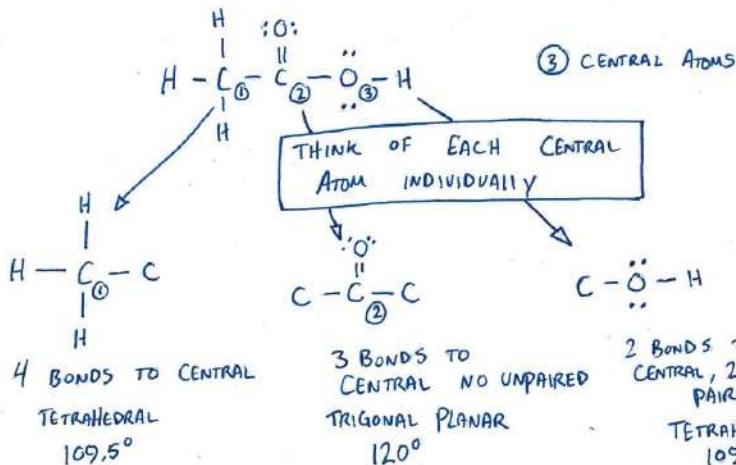 H :O:
H - C① - C② - Ö③ - H
H
③ CENTRAL ATOMS
THINK OF EACH CENTRAL
ATOM INDIVIDUALLY
H
H - C① - C
H
4 BONDS TO CENTRAL
TETRAHEDRAL
109.5°
:O:
C - C② - C
3 BONDS TO
CENTRAL NO UNPAIRED
TRIGONAL PLANAR
120°
C - Ö - H
2 BONDS
CENTRAL, 2
PAIR